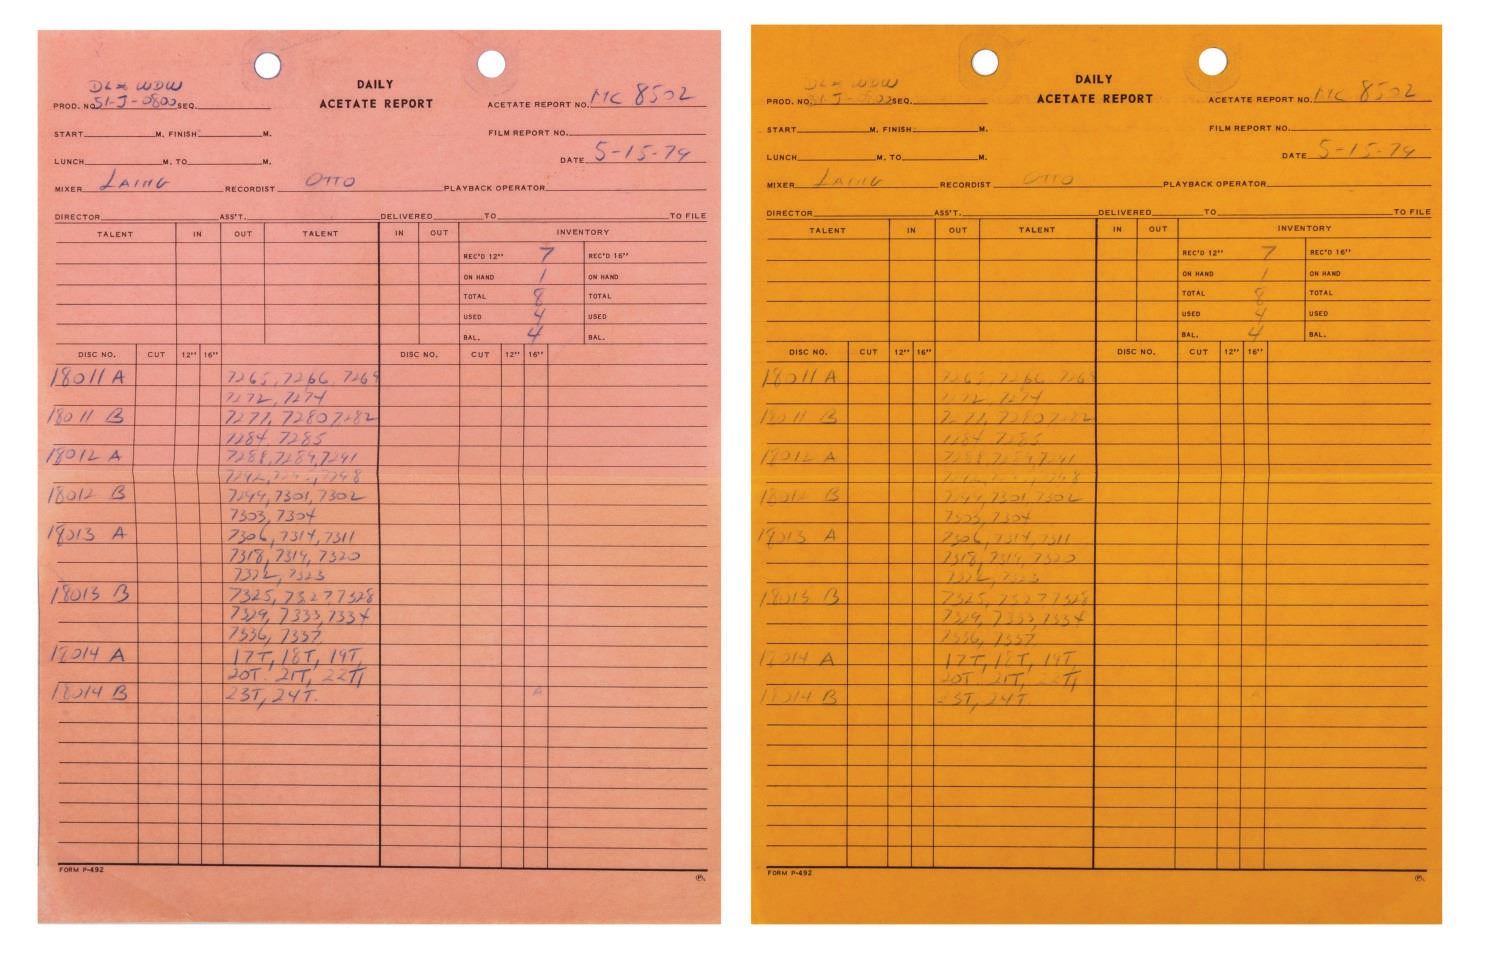 DL & WDW
PROD. NO. 51-J-0800 SEQ.
DAILY
ACETATE REPORT
ACETATE REPORT NO. MC 8502
START M. FINISH M.
FILM REPORT NO.
LUNCH M. TO M.
DATE 5-15-79
MIXER LAING RECORDIST OTTO PLAYBACK OPERATOR
DIRECTOR ASS'T. DELIVERED TO TO FILE
TALENT IN OUT TALENT IN OUT INVENTORY
REC'D 12" 7 REC'D 16"
ON HAND 1 ON HAND
TOTAL 8 TOTAL
USED 4 USED
BAL. 4 BAL.
DISC NO. CUT 12" 16" DISC NO. CUT 12" 16"
18011 A 7265, 7266, 7269
7272, 7274
18011 B 7277, 7280, 7282
7284, 7285
18012 A 7288, 7289, 7291
7298
18012 B 7299, 7301, 7302
7303, 7304
18013 A 7306, 7314, 7311
7318, 7319, 7320
7322, 7323
18013 B 7325, 7327 7328
7329, 7333, 7334
7336, 7337
18014 A 17T, 18T, 19T,
20T. 21T, 22T,
18014 B 23T, 24T.
FORM P-492
DL & WDW
PROD. NO. 51-J-0800 SEQ.
DAILY
ACETATE REPORT
ACETATE REPORT NO. MC 8502
START M. FINISH M.
FILM REPORT NO.
LUNCH M. TO M.
DATE 5-15-79
MIXER LAING RECORDIST OTTO PLAYBACK OPERATOR
DIRECTOR ASS'T. DELIVERED TO TO FILE
TALENT IN OUT TALENT IN OUT INVENTORY
REC'D 12" 7 REC'D 16"
ON HAND 1 ON HAND
TOTAL 8 TOTAL
USED 4 USED
BAL. 4 BAL.
DISC NO. CUT 12" 16" DISC NO. CUT 12" 16"
18011 A 7265, 7266, 7269
7272, 7274
18011 B 7277, 7280 7282
7284, 7285
18012 A 7288, 7289, 7291
7298
18012 B 7299, 7301, 7302
7303, 7304
18013 A 7306, 7314, 7311
7318, 7319, 7320
7322, 7323
18013 B 7325, 7327 7328
7329, 7333, 7334
7336, 7337
18014 A 17T, 18T, 19T,
20T 21T, 22T,
18014 B 23T, 24T
FORM P-492